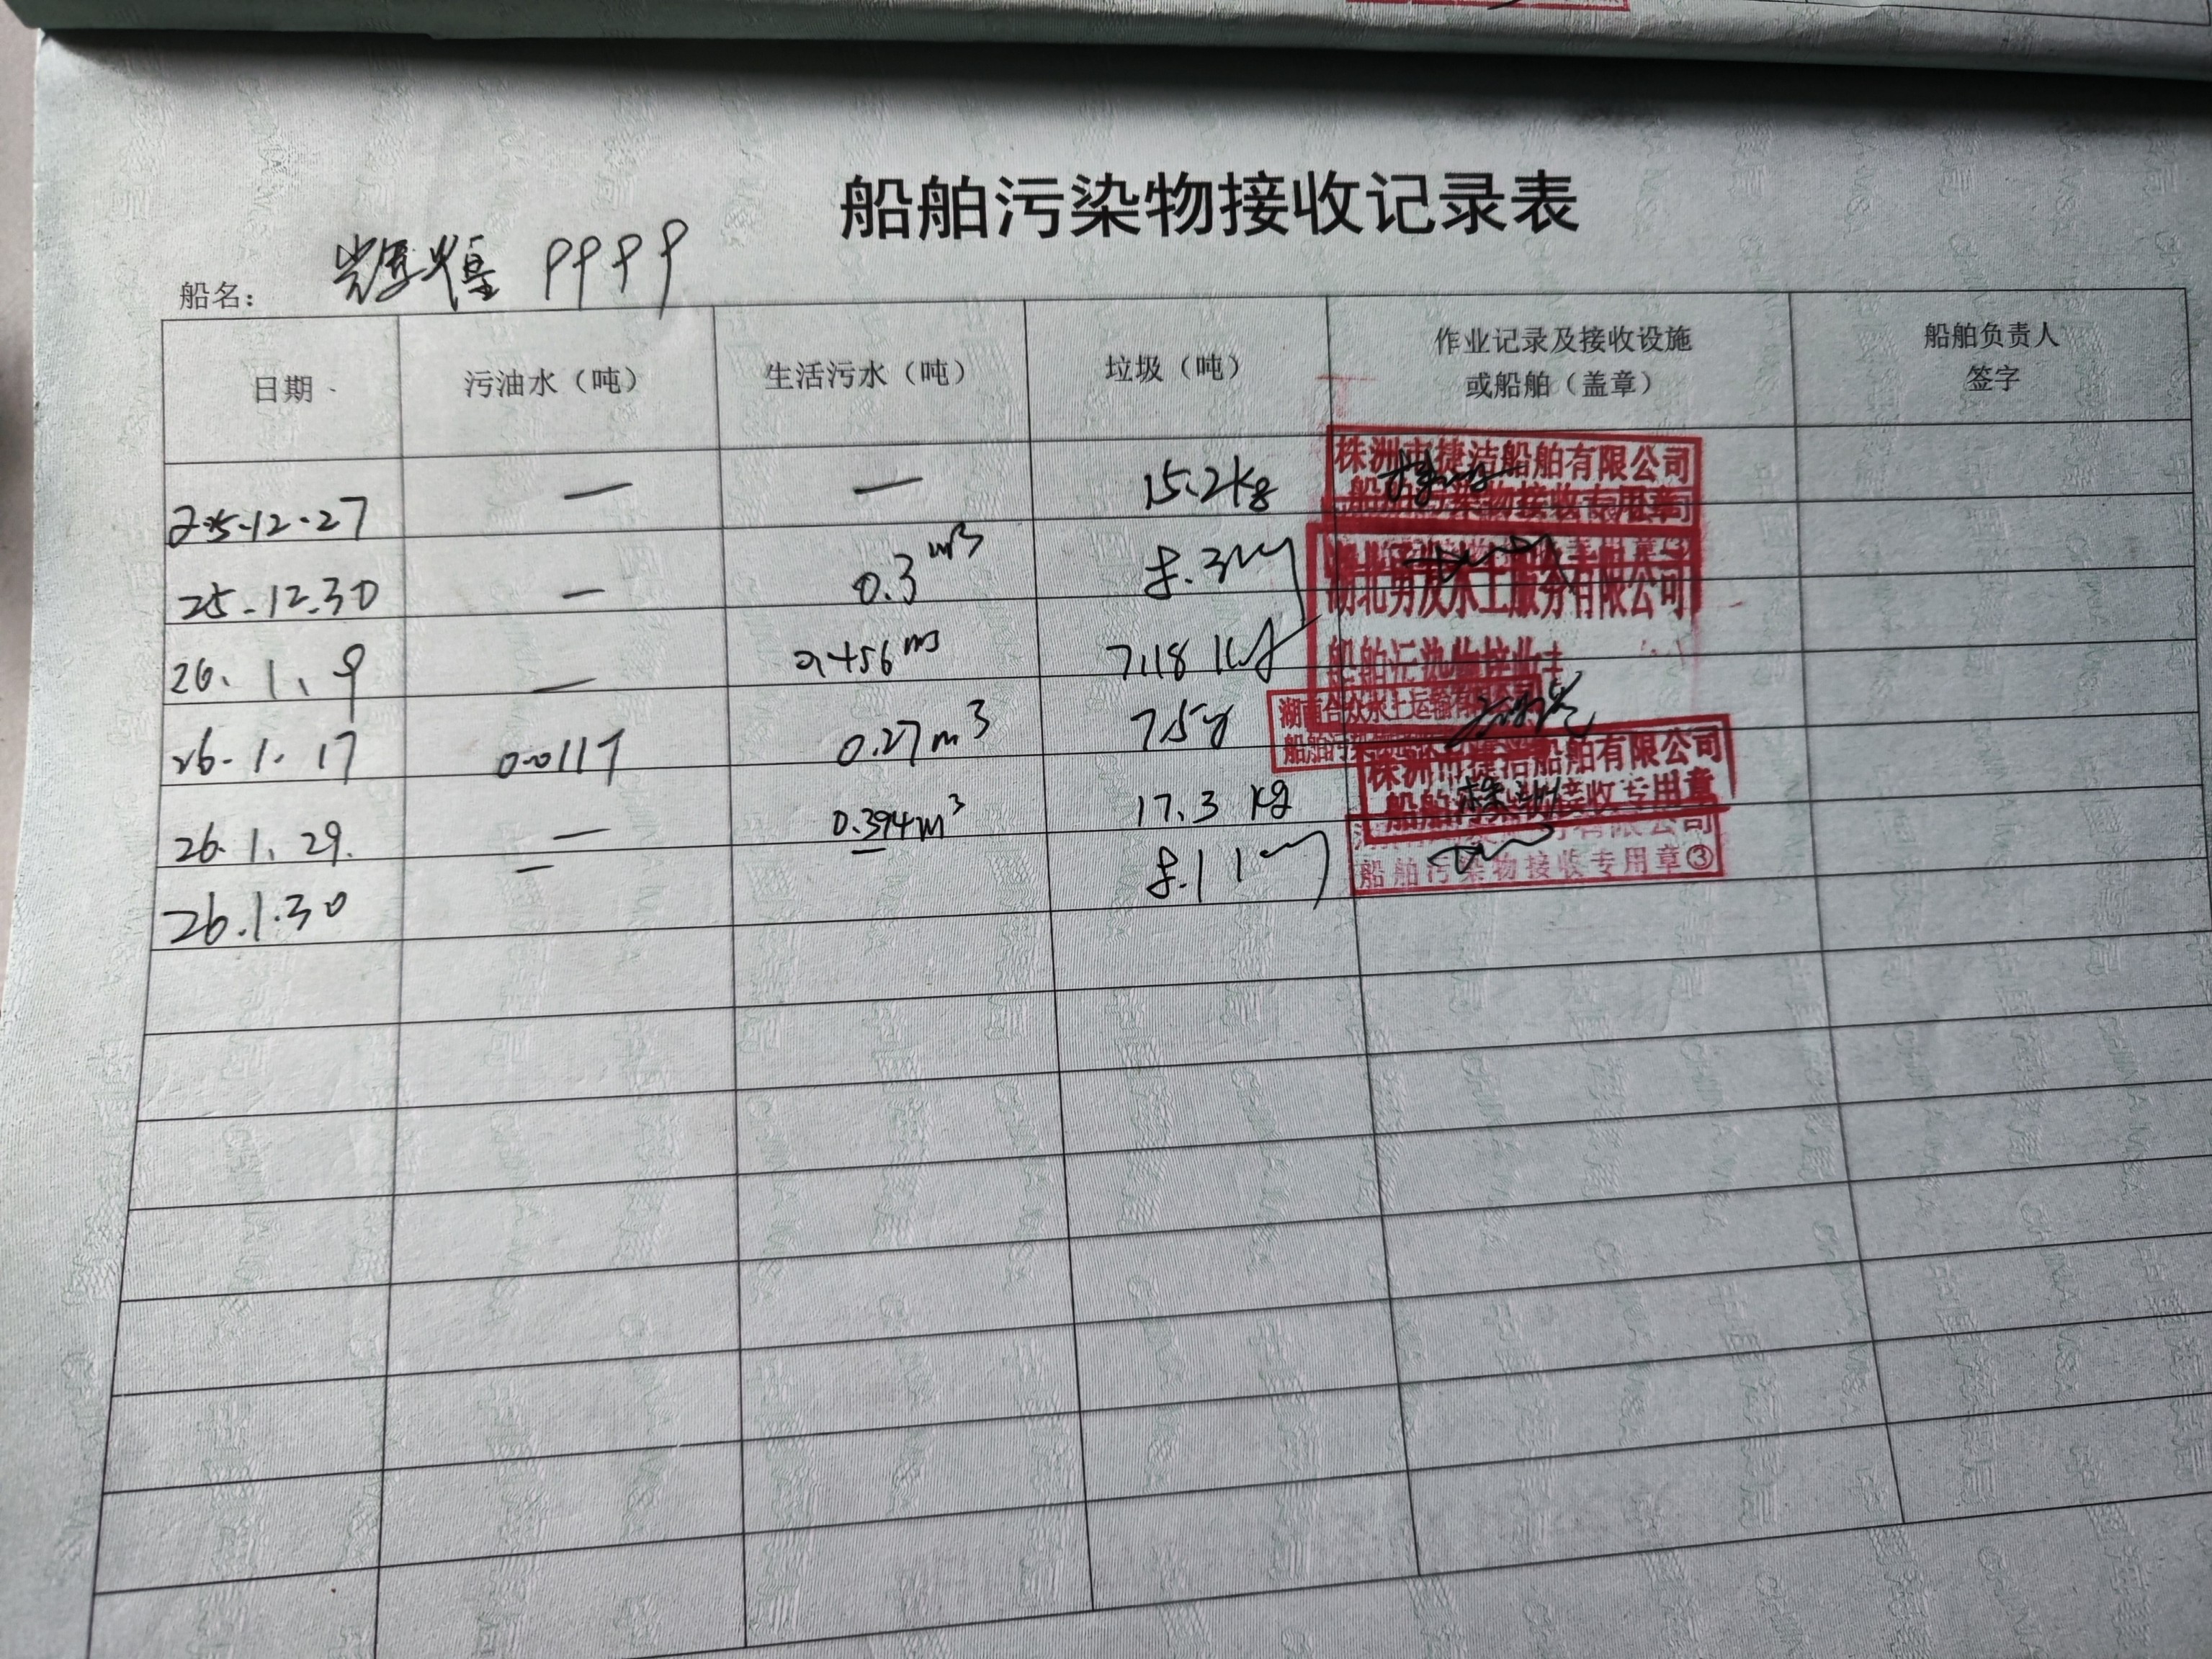 船舶污染物接收记录表
船名: 辉煌 9999
日期 污油水（吨） 生活污水（吨） 垃圾（吨） 作业记录及接收设施或船舶（盖章） 船舶负责人签字
25.12.27 — — 15.2kg 株洲市捷洁船舶有限公司
船舶污染物接收专用章
25.12.30 — 0.3 m3 8.3 水上服务有限公司
26.1.9 — 0.456 m3 7.18 kg 船舶污染物接收
26.1.17 0.011T 0.27m3 7.5 湖南合众水上运输有
船舶污
26.1.29. — 0.394m3 17.3 kg 株洲市捷洁船舶有限公司
船舶污染物接收专用章
26.1.30 — — 8.11 有限公司
船舶污染物接收专用章③